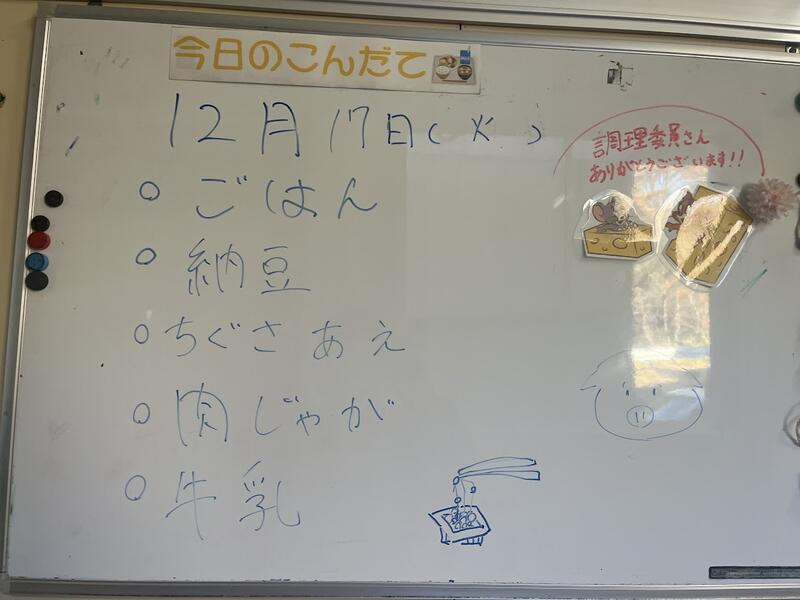 今日のこんだて
12月17日(火)
○ ごはん
○ 納豆
○ ちぐさあえ
○ 肉じゃが
○ 牛乳
調理委員さん
ありがとうございます!!